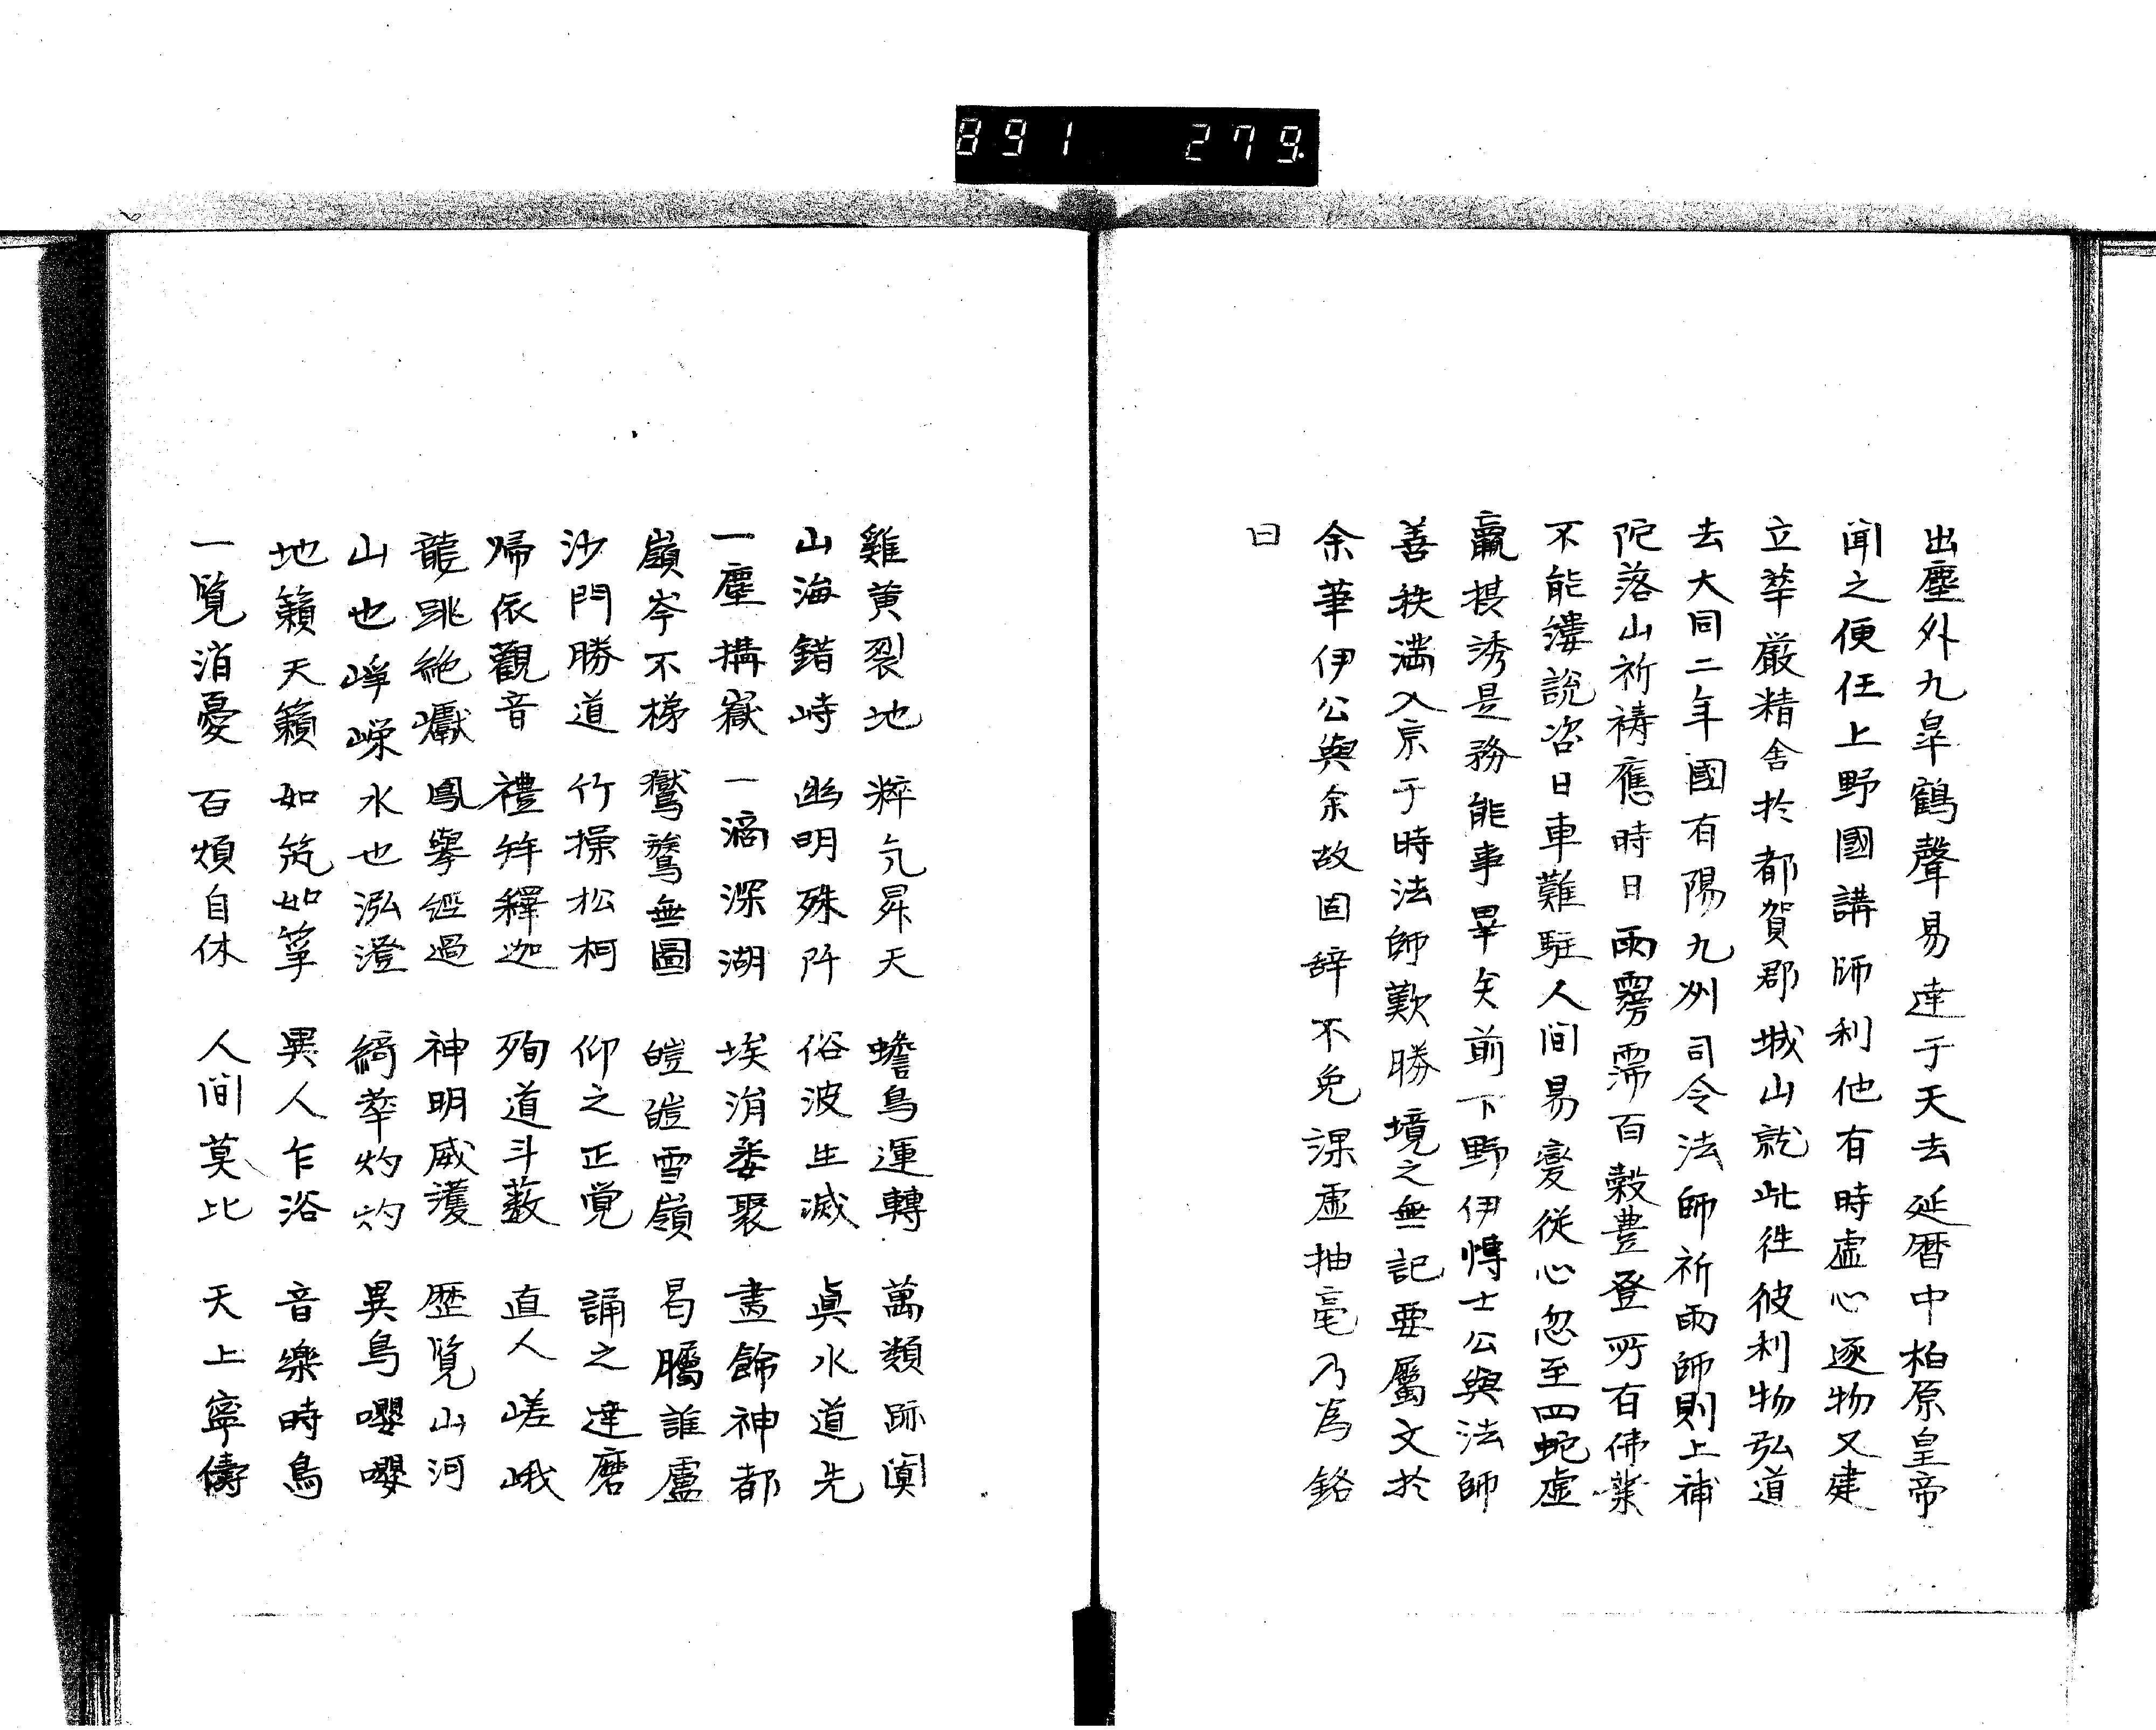 891 279.
出塵外九皐鶴聲易達于天去延暦中柏原皇帝
聞之便任上野國講師利他有時虚心逐物又建
立華厳精舍於都賀郡城山就此徃彼利物弘道
去大同二年國有陽九州司令法師祈雨師則上補
陀落山祈祷應時日雨雱霈百榖豊登所有佛業
不能縷說咨日車難駐人間易變従心忽至四蛇虚
羸棋誘是務能事畢矣前下野伊慱士公與法師
善秩満入京于時法師歎勝境之無記要屬文於
余筆伊公與余故固辞不免課虚抽毫乃為銘
曰
雞黄裂地 粹氣昇天 蟾烏運轉 萬類跡闐
山海錯峙 幽明殊阡 俗波生滅 眞水道先
一塵搆嶽 一滴深湖 埃涓委聚 畫餝神都
嶺岑不梯 鸑鷟無圖 皚皚雪嶺 曷矚誰廬
沙門勝道 竹操松柯 仰之正覚 誦之達磨
帰依觀音 禮拜釋迦 殉道斗藪 直人嵯峨
龍跳絶巘 鳳擧經過 神明威護 歴覧山河
山也崢嶸 水也泓澄 綺華灼灼 異鳥嚶嚶
地籟天籟 如筑如箏 異人乍浴 音樂時鳥
一覧消憂 百煩自休 人間莫比 天上寧儔